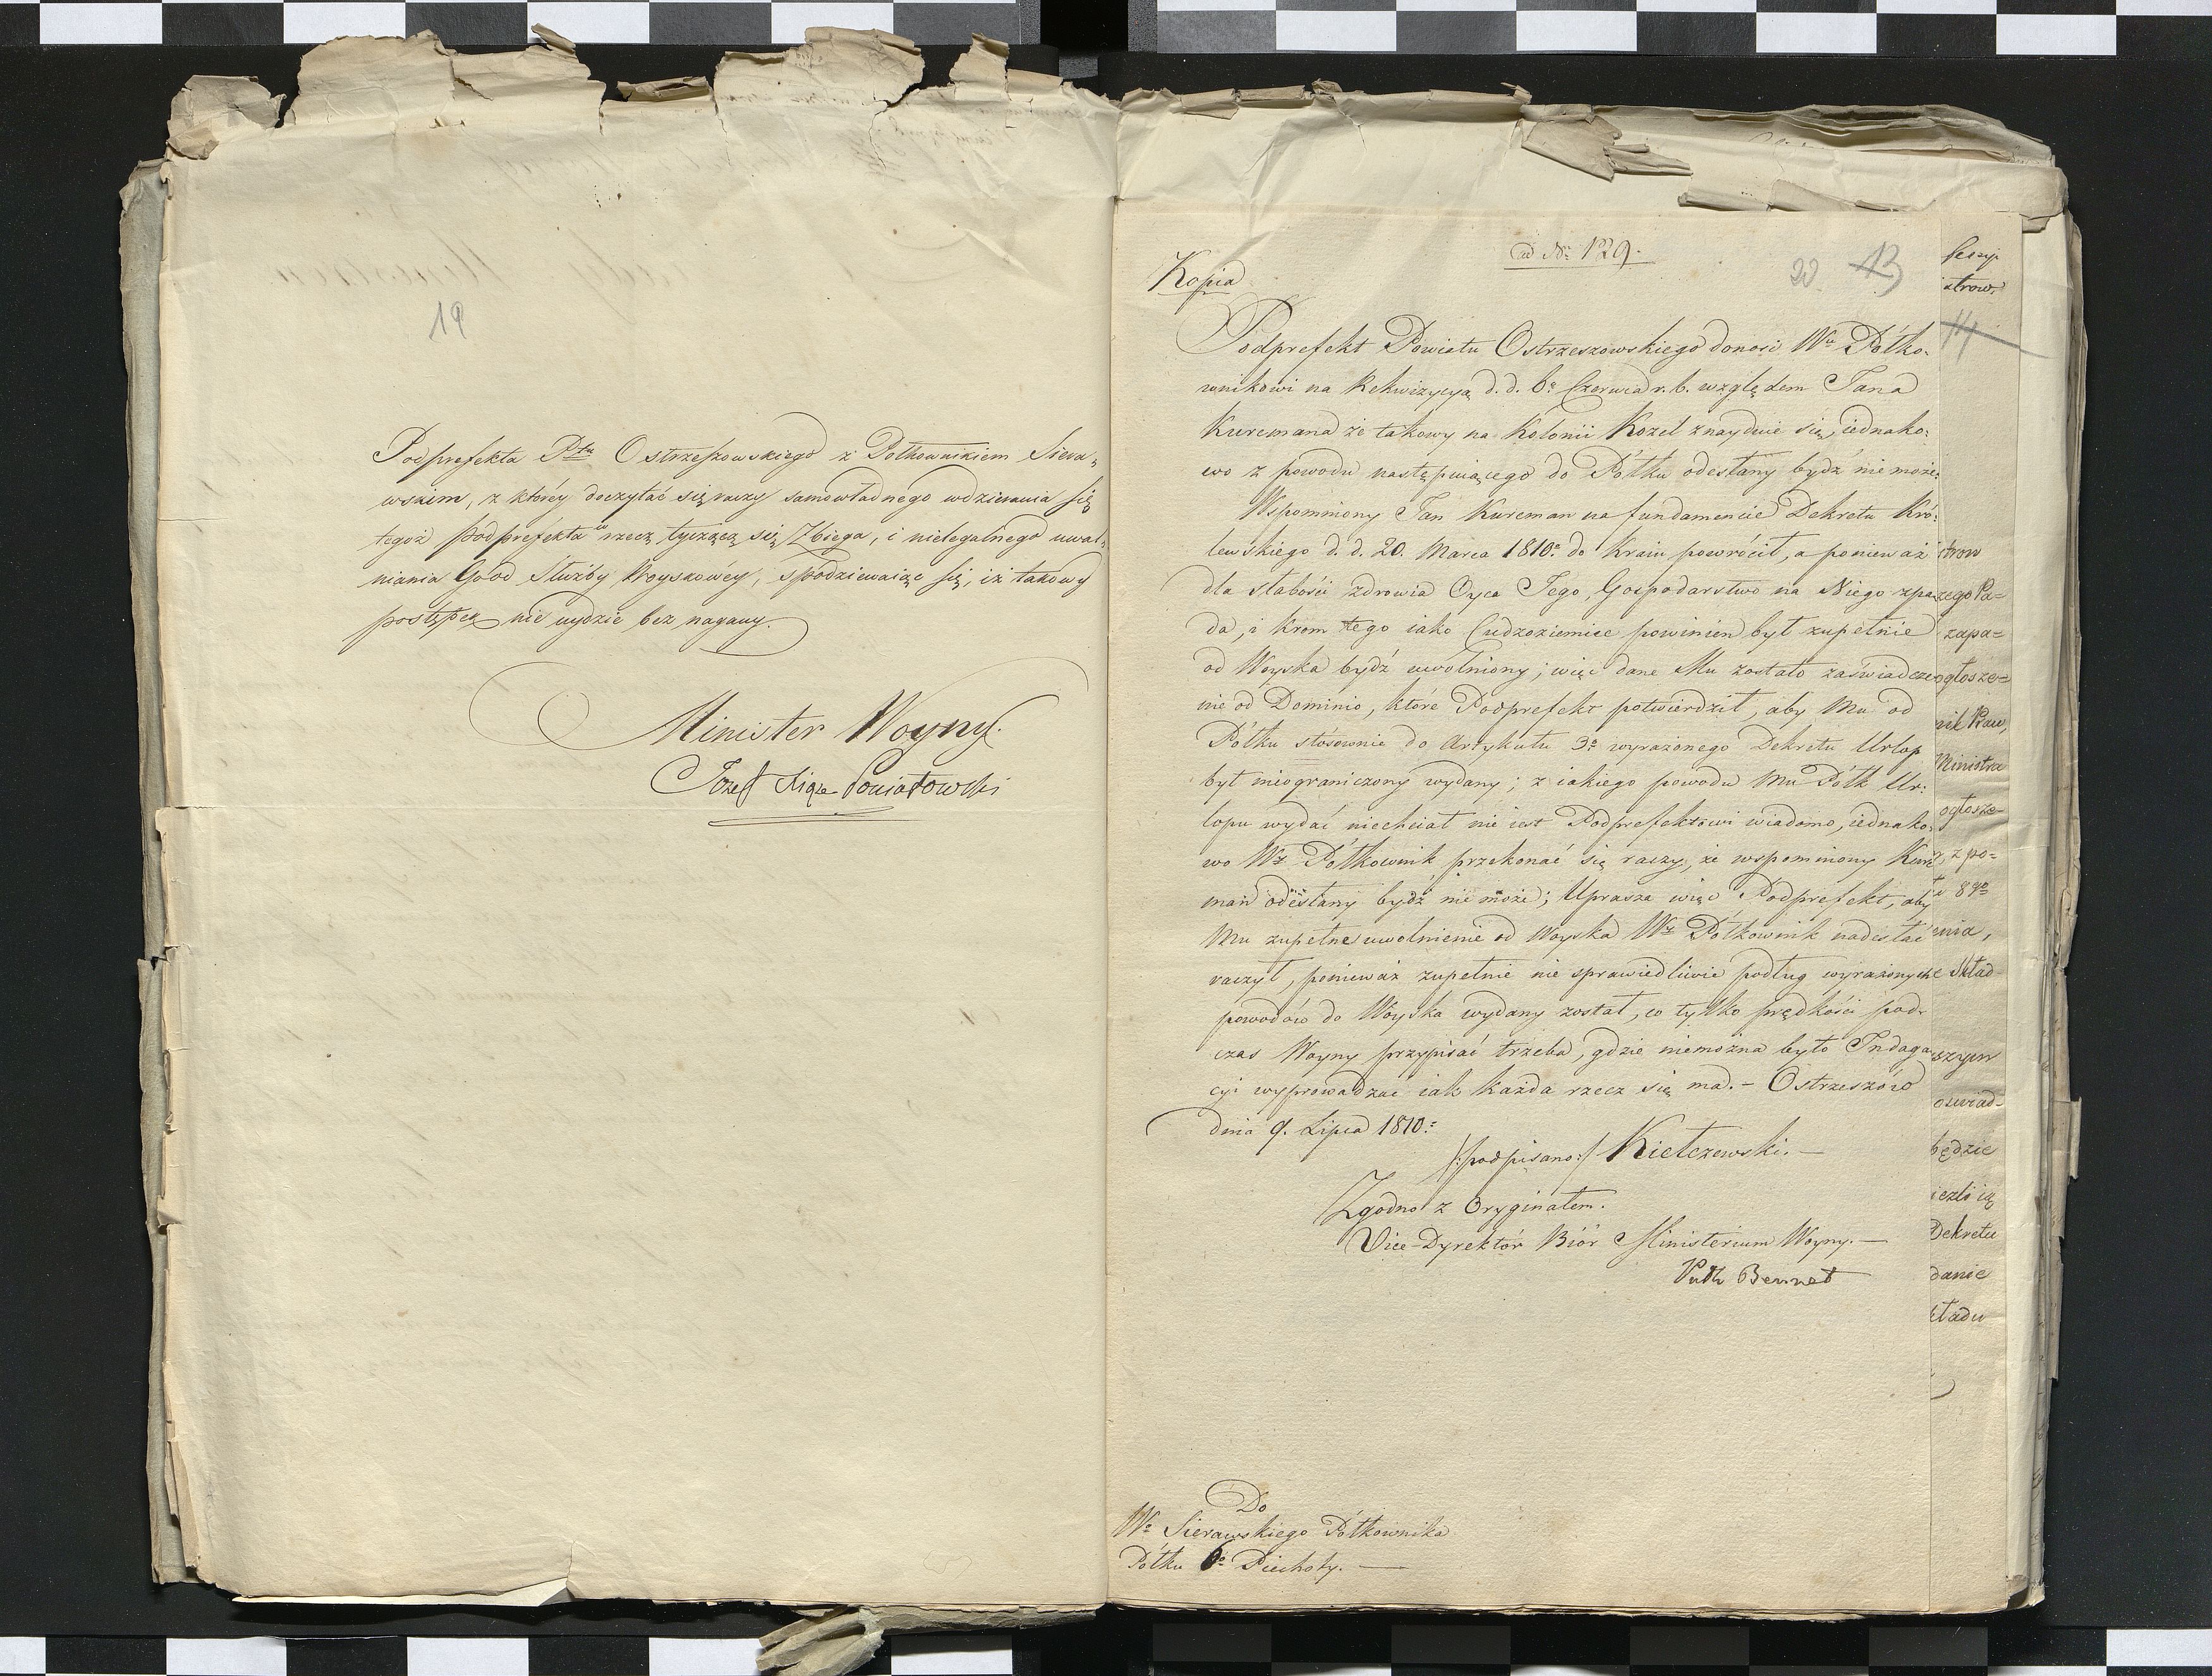 19
Podprefekta Ptu Ostrzeszowskiego z Półkownikiem Siera-
wskim, z któréy doczytać się raczy samowładnego wdzierania się
tegoż Podprefekta w rzecz tyczącą się Zbiega, i nielegalnego uwal-
niania Go od Służby Woyskowéy, spodziewaiąc się, iż takowy
postępek nie uydzie bez nagany.
Minister Woyny.
Józef Xiąże Poniatowski
ad Nr 129.
Kopia
20. 13
Podprefekt Powiatu Ostrzeszowskiego donosi Wu Półko-
wnikowi na Rekwizycyą d. d. 6o Czerwca r. b. względem Jana
Kurcmana że takowy na Kolonii Kozel znayduie się, iednako-
wo z powodu następuiącego do Półku odesłany bydź nie może:
Wspomniony Jan Kurcman na fundamencie Dekretu Kró-
lewskiego d. d. 20. Marca 1810o do Kraiu powrócił, a ponieważ
dla słabości zdrowia Oyca Jego, Gospodarstwo na Niego spa-
da, i krom tego iako Cudzoziemiec powinien był zupełnie
od Woyska bydź uwolniony; więc dane Mu zostało zaświadcze-
nie od Dominio, które Podprefekt potwierdził, aby Mu od
Półku stósownie do Artykułu 3o wyrażonego Dekretu Urlop
był nieograniczony wydany; z iakiego powodu Mu Półk Ur-
lopu wydać niechciał nie iest Podprefektowi wiadomo, iednako-
wo Wy Półkownik przekonać się raczy, że wspomniony Kurc
man odesłany bydź nie może; Uprasza więc Podprefekt, aby
Mu zupełne uwolnienie od Woyska Wy Półkownik nadesłać
raczył, ponieważ zupełnie nie sprawiedliwie podług wyrażonych
powodów do Woyska wydany został, co tylko prędkości pod-
czas Woyny przypisać trzeba, gdzie niemożna było Indaga
cyi wyprowadzać iak każda rzecz się ma. - Ostrzeszów
dnia 9. Lipca 1810o
/:podpisano:/ Kiełczewski. -
Zgodno z Oryginałem.
Vice-Dyrektór Biór Ministerium Woyny. -
Bennet
Do
Wo Sierawskiego Półkownika
Półku 6o Piechoty. -
strow.
14
strow
zego Pa-
zapa-
ogłosze-
Ministra
ogłosze-
z po-
enia,
Skład
szym
oswiad-
będzie
ieżli ią
Dekretu
danie
kładu